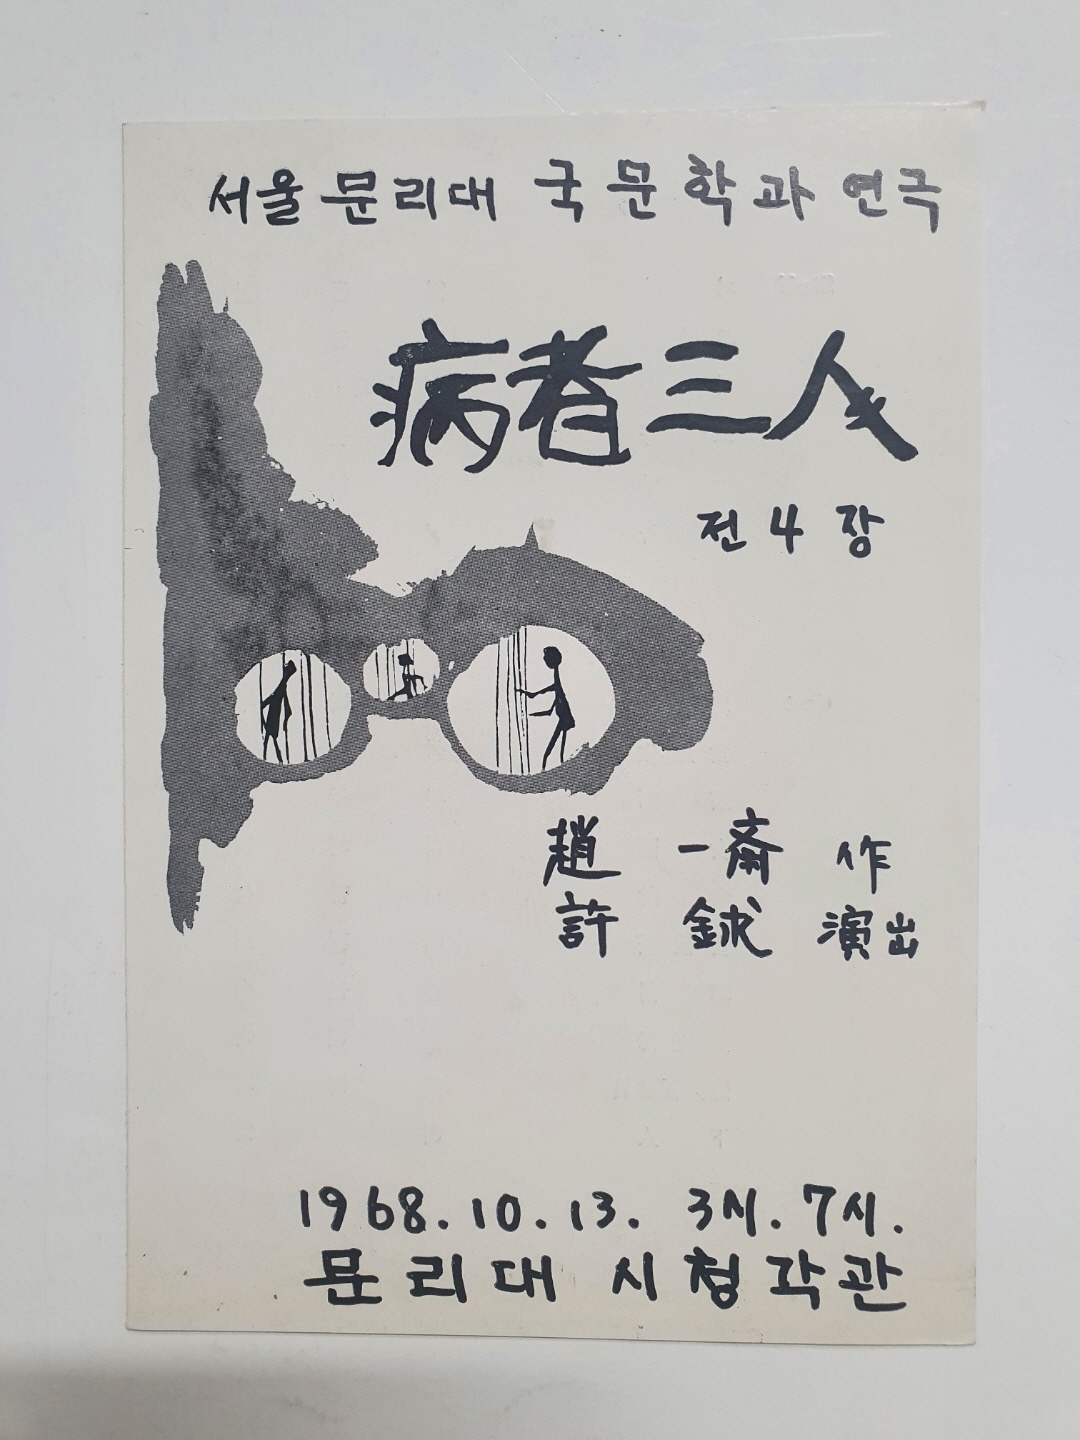 서울 문리대 국문학과 연극
病者三人
전 4 장
趙 一斋 作
許 鉞 演出
1968. 10. 13. 3시. 7시.
문리대 시청각관